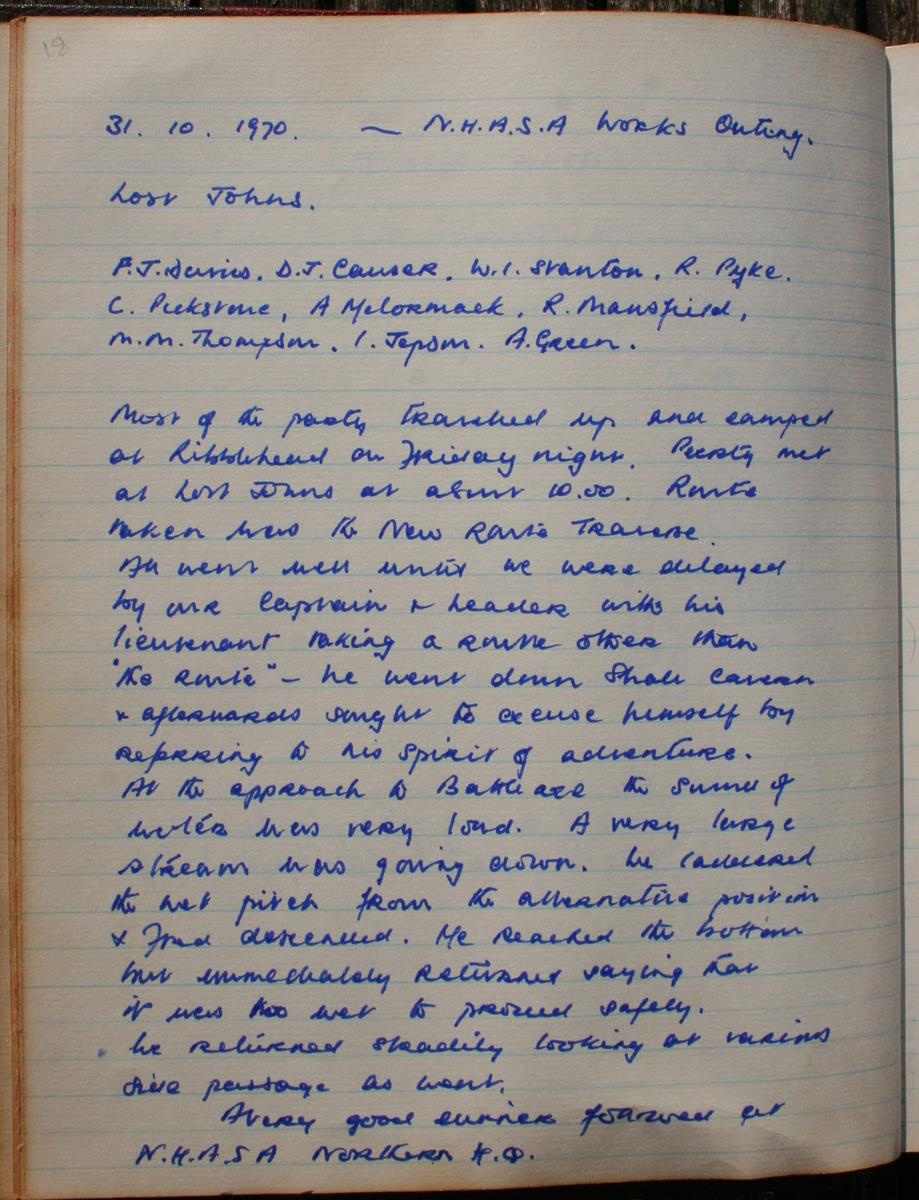 18
31. 10. 1970. — N.H.A.S.A Works Outing.
Lost Johns.
F.J. Davies. D.T. Causer. W.I. Stanton. R. Pyke.
C. Pickstone, A McCormack, R. Mansfield,
M.M. Thompson. I. Jepson. A. Green.
Most of the party travelled up and camped
at Ribblehead on Friday night. Party met
at Lost Johns at about 10.00. Route
taken was the New Route Traverse.
All went well until we were delayed
by our Captain & leader with his
lieutenant taking a route other than
"the route" - he went down Shale Cavern
& afterwards sought to excuse himself by
referring to his Spirit of adventure.
At the approach to Battleaxe the sound of
water was very loud. A very large
stream was going down. We laddered
the wet pitch from the alternative position
& Fred descended. He reached the bottom
but immediately returned saying that
it was too wet to proceed safely.
We returned steadily looking at various
side passage as went.
A very good dinner followed at
N.H.A.S A Northern H.Q.